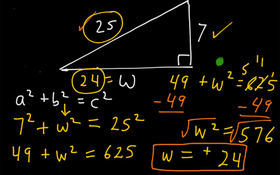 25
7 ✓
24 = w
a² + b² = c²
7² + w² = 25²
49 + w² = 625
49 + w² = 625
5 11
-49 -49
√w² = √576
w = + 24